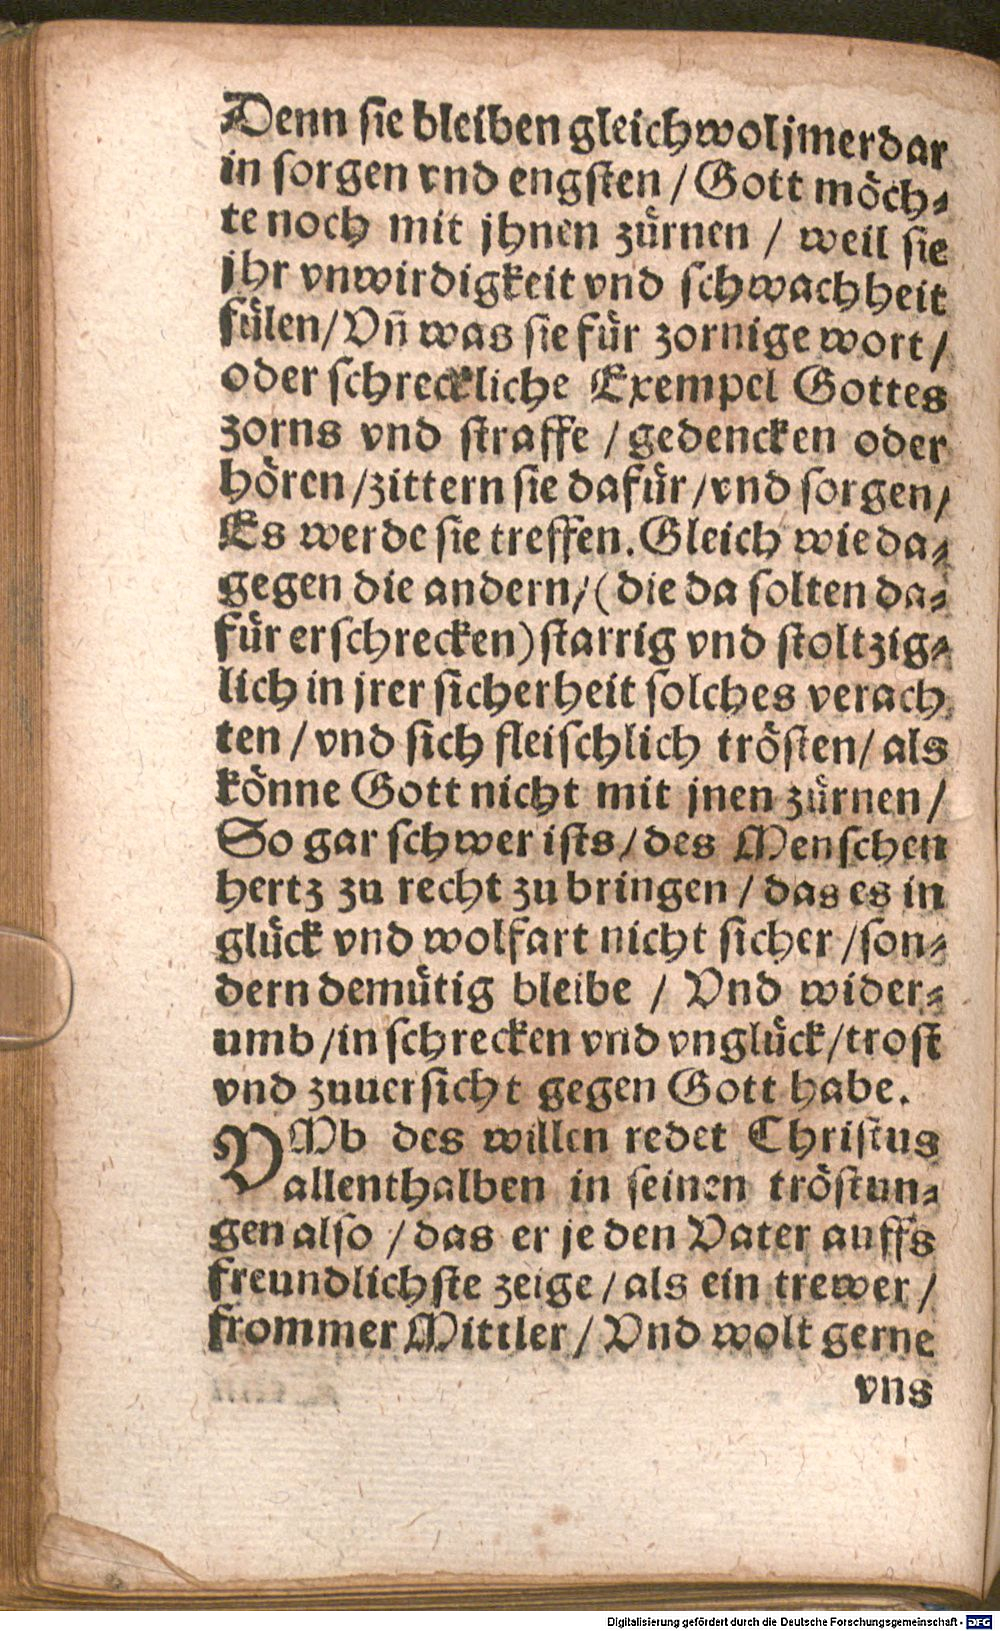 Denn sie bleiben gleichwol jmerdar
in sorgen vnd engsten / Gott möch⸗
te noch mit jhnen zürnen / weil sie
jhr vnwirdigkeit vnd schwachheit
fülen / Vñ was sie für zornige wort /
oder schreckliche Exempel Gottes
zorns vnd straffe / gedencken oder
hören / zittern sie dafür / vnd sorgen /
Es werde sie treffen. Gleich wie da⸗
gegen die andern / (die da solten da⸗
für erschrecken) starrig vnd stoltzig⸗
lich in jrer sicherheit solches verach⸗
ten / vnd sich fleischlich trösten / als
könne Gott nicht mit jnen zürnen /
So gar schwer ists / des Menschen
hertz zu recht zu bringen / das es in
glück vnd wolfart nicht sicher / son⸗
dern demütig bleibe / Vnd wider⸗
umb / in schrecken vnd vnglück / trost
vnd zuuersicht gegen Gott habe.
VMb des willen redet Christus
allenthalben in seinen tröstun⸗
gen also / das er je den Vater auffs
freundlichste zeige / als ein trewer /
frommer Mittler / Vnd wolt gerne
vns
Digitalisierung gefördert durch die Deutsche Forschungsgemeinschaft - DFG